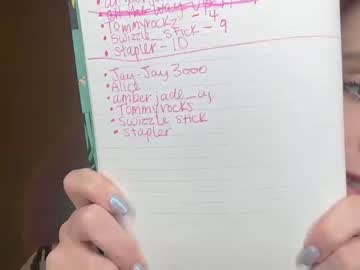 • Tommyrockz - 4
• Swizzle_Stick - 9
• Stapler - 10
• Jay-Jay3000
• Alice
• amberjade_cj
• Tommyrocks
• Swizzle stick
• stapler